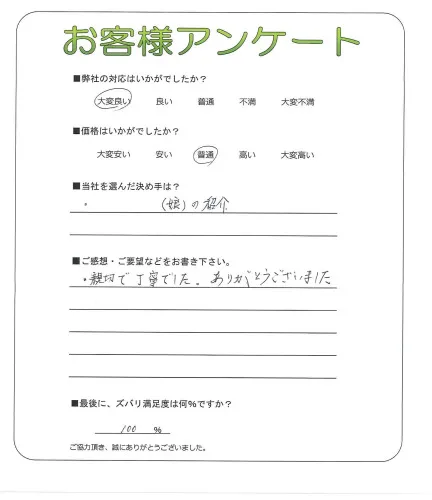 お客様アンケート
■弊社の対応はいかがでしたか？
大変良い 良い 普通 不満 大変不満
■価格はいかがでしたか？
大変安い 安い 普通 高い 大変高い
■当社を選んだ決め手は？
・ (娘)の紹介
■ご感想・ご要望などをお書き下さい。
・親切で丁寧でした。ありがとうございました
■最後に、ズバリ満足度は何％ですか？
100 ％
ご協力頂き、誠にありがとうございました。